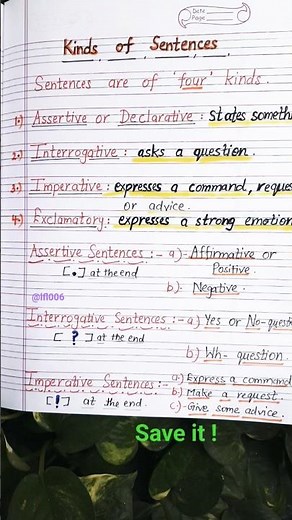 Date
Page
Kinds of Sentences.
Sentences are of 'four' kinds.
1.) Assertive or Declarative : States someth
2.) Interrogative : asks a question.
3.) Imperative : expresses a command, reque
or advice.
4.) Exclamatory : expresses a strong emotion
Assertive Sentences :- a)- Affirmative or
[.] at the end Positive.
b)- Negative.
@ifl006
Interrogative Sentences :- a) Yes or No-quest
[ ? ] at the end
b) Wh- question.
Imperative Sentences:- a.) Express a command
[!] at the end. b.) Make a request.
c)- Give some advice.
Save it !